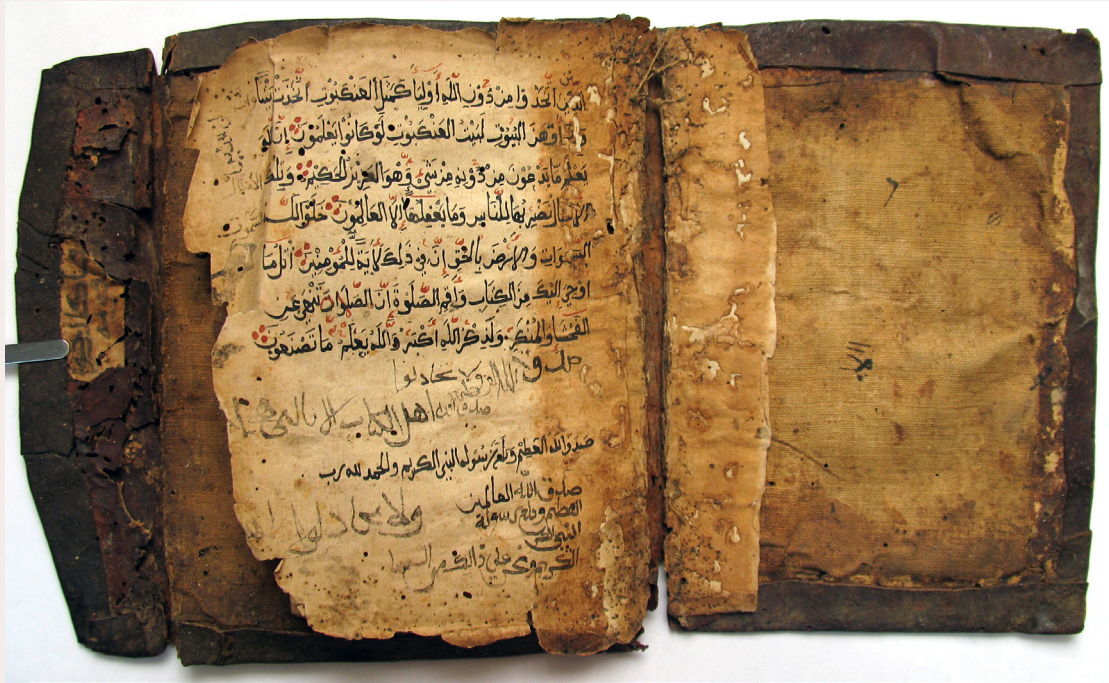 الذين اتخذوا من دون الله أوليا كمثل العنكبوت اتخذت بيتا
وإن أوهن البيوت لبيت العنكبوت لو كانوا يعلمون إن الله
يعلم ما يدعون من دونه من شيء وهو العزيز الحكيم وتلك
الامثال نضربها للناس وما يعقلها إلا العالمون خلق الله
السموات والأرض بالحق إن في ذلك لأية للمومنين اتل ما
اوحي اليك من الكتاب وأقم الصلوة إن الصلوة تنهى عن
الفحشا والمنكر ولذكر الله أكبر والله يعلم ما تصنعون
صدق الله
تجادلوا
اهل الكتاب الا بالتي هي
صدق الله العظيم وبلغ رسوله النبي الكريم والحمد لله رب
صدق الله العالمين
العظيم وبلغ رسوله
النبي
ولا تجادلوا
الكريم ونحن على ذلك من